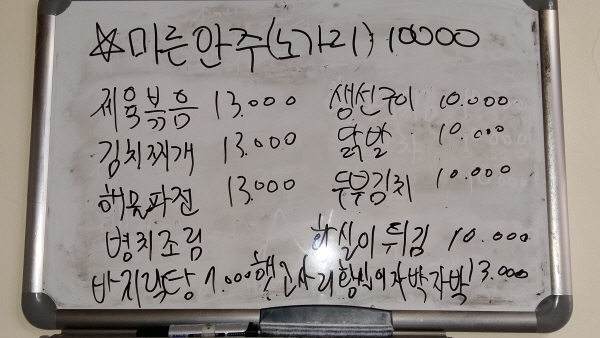 ☆마른안주(노가리) 10000
제육볶음 13.000 생선구이 10.000
김치찌개 13.000 닭발 10.000
해물파전 13.000 두부김치 10.000
병치조림 황실이튀김 10.000
바지락탕 7.000 햇고사리황실이자박자박 13.000